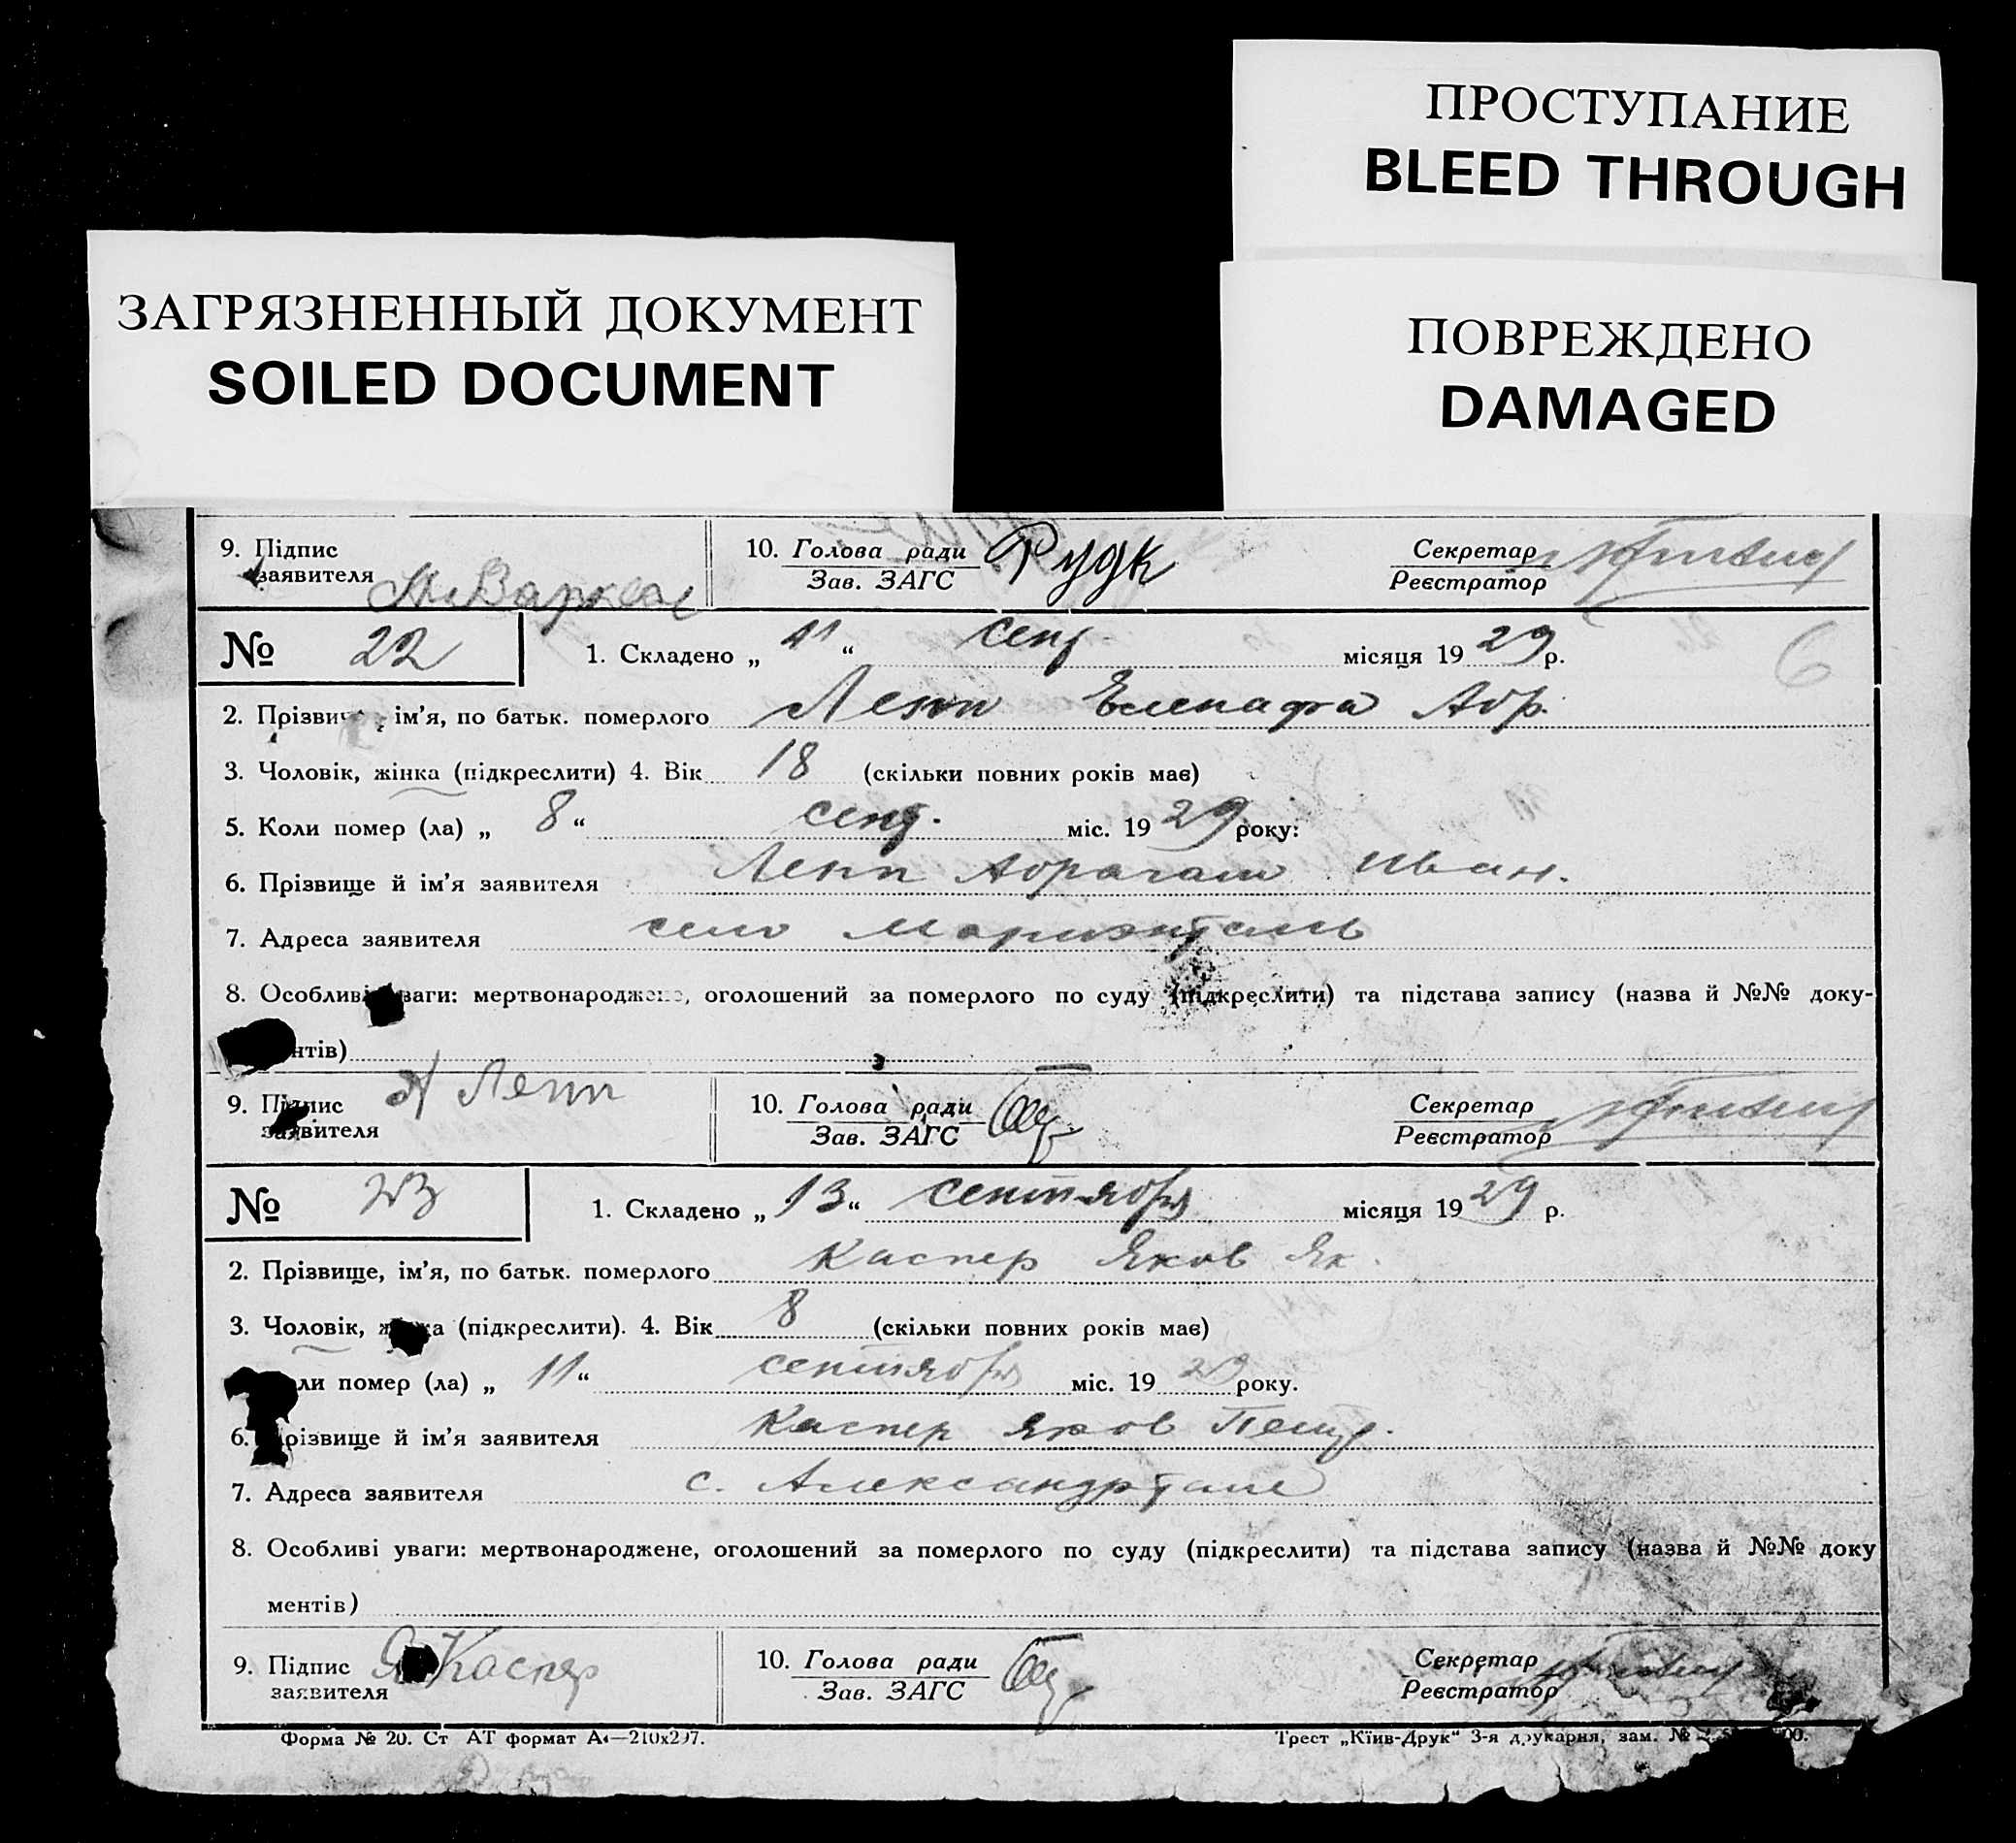 ПРОСТУПАНИЕ
BLEED THROUGH
ЗАГРЯЗНЕННЫЙ ДОКУМЕНТ
SOILED DOCUMENT
ПОВРЕЖДЕНО
DAMAGED
9. Підпис заявителя 10. Голова ради Зав. ЗАГС Рудк Секретар Реєстратор
№ 22 1. Складено „ 11 “ сент. місяця 19 29 р. 6
2. ім’я, по батьк. померлого Ленн Абр.
3. Чоловік, жінка (підкреслити) 4. Вік 18 (скільки повних років має)
5. Коли помер (ла) „ 8 “ сент. міс. 19 29 року:
6. Прізвище й ім’я заявителя Абрагам Иван.
7. Адреса заявителя село Мариэнталь
8. Особливі уваги: мертвонароджене, оголошений за померлого по суду (підкреслити) та підстава запису (назва й №№ доку-
нтів)
9. Підпис заявителя 10. Голова ради Зав. ЗАГС Секретар Реєстратор
№ 23 1. Складено „ 13 “ сентября місяця 19 29 р.
2. Прізвище, ім’я, по батьк. померлого Каспер Яков Як.
3. Чоловік, (підкреслити). 4. Вік 8 (скільки повних років має)
помер (ла) „ 11 “ сентября міс. 19 29 року.
6. Прізвище й ім’я заявителя Каспер Яков Петр.
7. Адреса заявителя с. Александрталь
8. Особливі уваги: мертвонароджене, оголошений за померлого по суду (підкреслити) та підстава запису (назва й №№ доку
ментів)
9. Підпис заявителя Я Каспер 10. Голова ради Зав. ЗАГС Секретар Реєстратор
Форма № 20. Ст АТ формат А4—210х297. Трест „Київ-Друк“ 3-я друкарня, зам. №